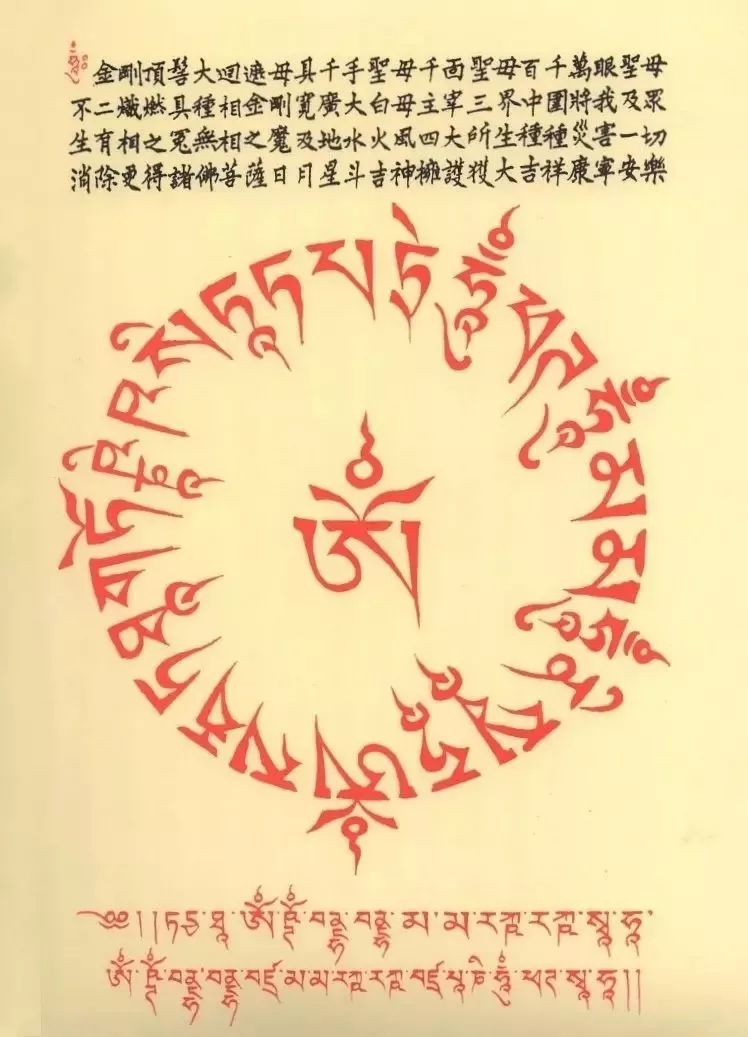 金剛頂髻大迴遮母具千手聖母千面聖母百千萬眼聖母
不二熾燃具種相金剛寬廣大白母主宰三界中圍將我及眾
生有相之冤無相之魔及地水火風四大所生種種災害一切
消除更得諸佛菩薩日月星斗吉神擁護獲大吉祥康寧安樂
ཨོཾ
ཏ་པ་ཏྲེ་ཧཱུྃ་ཕཊ་ཧཱུྃ་མ་མ་ཧཱུྃ་ནི་སྭཱ་ཧཱ
༄༅།།ཏདྱ་ཐཱ་ ཨོཾ་ བནྡྷ་བནྡྷ་ མ་མ་རཀྵ་རཀྵ་སྭཱ་ཧཱ་
ཨོཾ་ བནྡྷ་བནྡྷ་བཛྲ་མ་མ་རཀྵ་རཀྵ་བཛྲ་པཱ་ཎི་ཧཱུྃ་ཕཊ་སྭཱ་ཧཱ།།